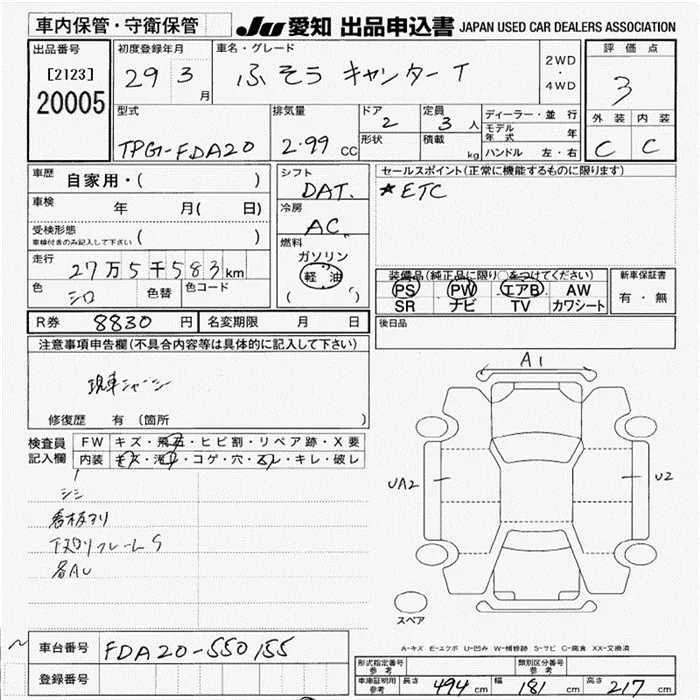 車内保管・守衛保管 JU 愛知 出品申込書 JAPAN USED CAR DEALERS ASSOCIATION
出品番号 初度登録年月 車名・グレード 2WD・4WD 評価点
[2123] 29 3月 ふそう キャンター T 3
20005
型式 排気量 ドア 定員 ディーラー・並行 外装 内装
TPG-FDA20 2.99 cc 2 3人 モデル年式 年 C C
形状 積載 kg ハンドル 左・右
車歴 自家用・( ) シフト セールスポイント(正常に機能するものに限ります)
DAT. ★ETC
車検 年 月( 日) 冷房
AC
受検形態 ( )
車検付きのみ記入して下さい
燃料
ガソリン
軽油
( )
走行 27万5千583km
色 シロ 色替 色コード
装備品(純正品に限り○をつけてください) 新車保証書
PS PW エアB AW 有・無
SR ナビ TV カワシート
R券 8830円 名変期限 月 日 後日品
注意事項申告欄(不具合内容等は具体的に記入して下さい)
現車シャーシー
修復歴 有 (箇所 )
検査員記入欄 FW キズ・飛石・ヒビ割・リペア跡・X要
内装 キズ・汚れ・コゲ・穴・スレ・キレ・破レ
シミ
看板アリ
下回りフレームS
各AU
A1
UA2
U2
スペア
A-キズ E-エクボ U-凹み W-補修跡 S-サビ C-腐食 XX-交換済
車台番号 FDA20-550155
登録番号
形式指定番号 参考 類別区分番号 参考
車庫証明用 参考 長さ 494cm 幅 181cm 高さ 217cm